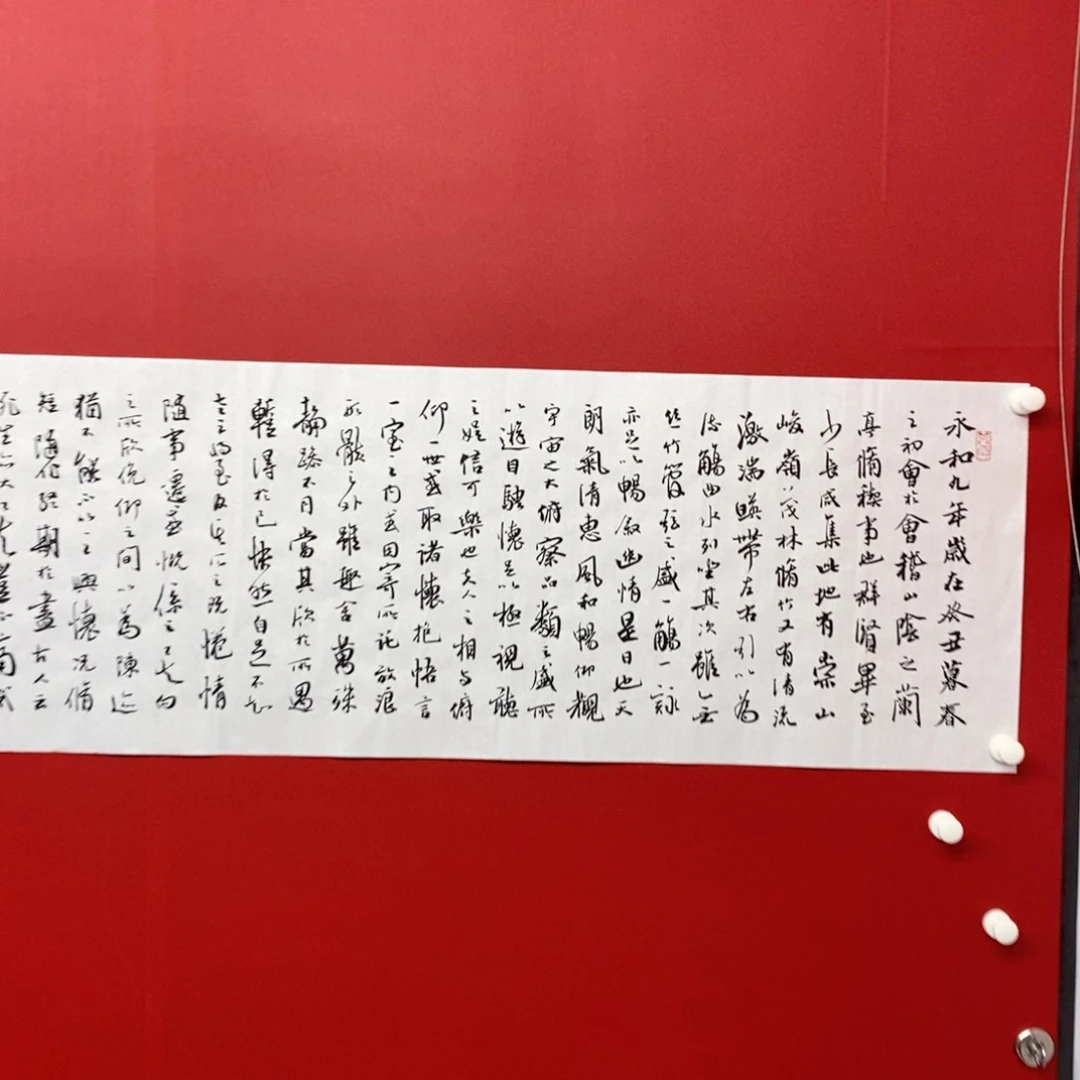 永和九年歲在癸丑暮春
之初會於會稽山陰之蘭
亭脩禊事也群賢畢至
少長咸集此地有崇山
峻嶺茂林脩竹又有清流
激湍暎帶左右引以為
流觴曲水列坐其次雖無
絲竹管弦之盛一觴一詠
亦足以暢敘幽情是日也天
朗氣清惠風和暢仰觀
宇宙之大俯察品類之盛所
以遊目騁懷足以極視聽
之娛信可樂也夫人之相與俯
仰一世或取諸懷抱悟言
一室之內或因寄所託放浪
形骸之外雖趣舍萬殊
靜躁不同當其欣於所遇
蹔得於己快然自足不知
老之將至及其所之既惓情
隨事遷感慨係之矣向
之所欣俛仰之間以為陳迹
猶不能不以之興懷況脩
短隨化終期於盡古人云
死生亦大矣豈不痛哉